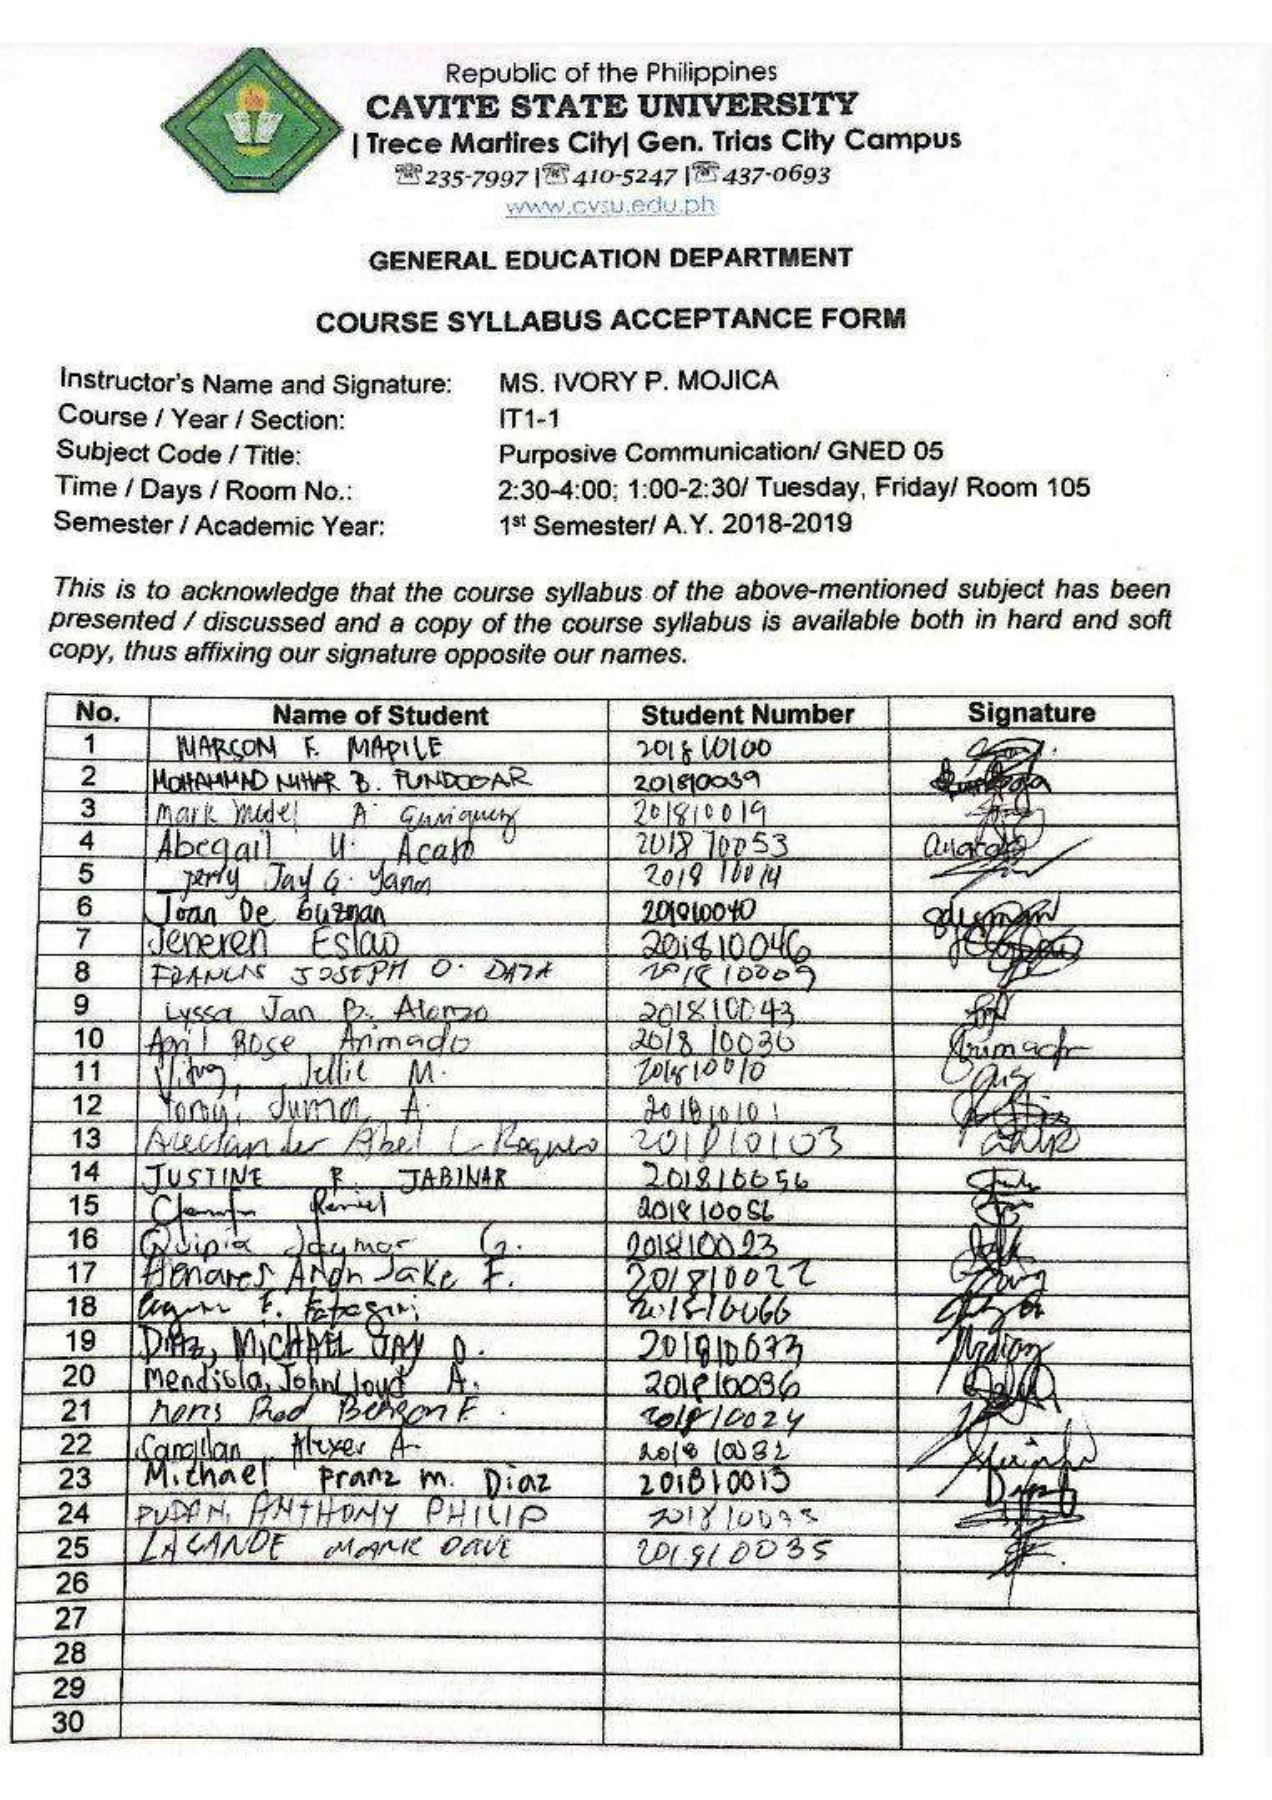 Republic of the Philippines
CAVITE STATE UNIVERSITY
| Trece Martires City| Gen. Trias City Campus
☏235-7997 |☏410-5247 |☏437-0693
www.cvsu.edu.ph
GENERAL EDUCATION DEPARTMENT
COURSE SYLLABUS ACCEPTANCE FORM
Instructor's Name and Signature: MS. IVORY P. MOJICA
Course / Year / Section: IT1-1
Subject Code / Title: Purposive Communication/ GNED 05
Time / Days / Room No.: 2:30-4:00; 1:00-2:30/ Tuesday, Friday/ Room 105
Semester / Academic Year: 1st Semester/ A.Y. 2018-2019
This is to acknowledge that the course syllabus of the above-mentioned subject has been
presented / discussed and a copy of the course syllabus is available both in hard and soft
copy, thus affixing our signature opposite our names.
No. Name of Student Student Number Signature
1 MARCON F. MAPILE 201810100
2 MOHAMMAD NIHAR B. FUNDOGAR 201810039
3 Mark Midel A Enriquez 201810019
4 Abegail U. Acaso 201810053
5 Jerry Jay G. Yana 201810014
6 Joan De Guzman 201810040
7 Jeneren Eslao 201810046
8 FRANCIS JOSEPH O. DAZA 201810009
9 Lyssa Jan B. Alonzo 201810043
10 April Rose Arimado 201810030
11 Jellie M. 201810010
12 A. 201810101
13 Abel L. Roquero 201810103
14 JUSTINE R. JABINAR 201810056
15 201810056
16 Quipia Jaymar G. 201810023
17 Henares Aron Jake F. 201810022
18 F. 201810066
19 DIAZ, MICHAEL JAY D. 201810073
20 Mendiola, John Lloyd A. 201810036
21 Benson F. 201810024
22 Cangilan Alexer A. 201810032
23 Michael Franz m. Diaz 201810013
24 PUPAN, ANTHONY PHILIP
25 LACANDE MARK DAVE 201810035
26
27
28
29
30